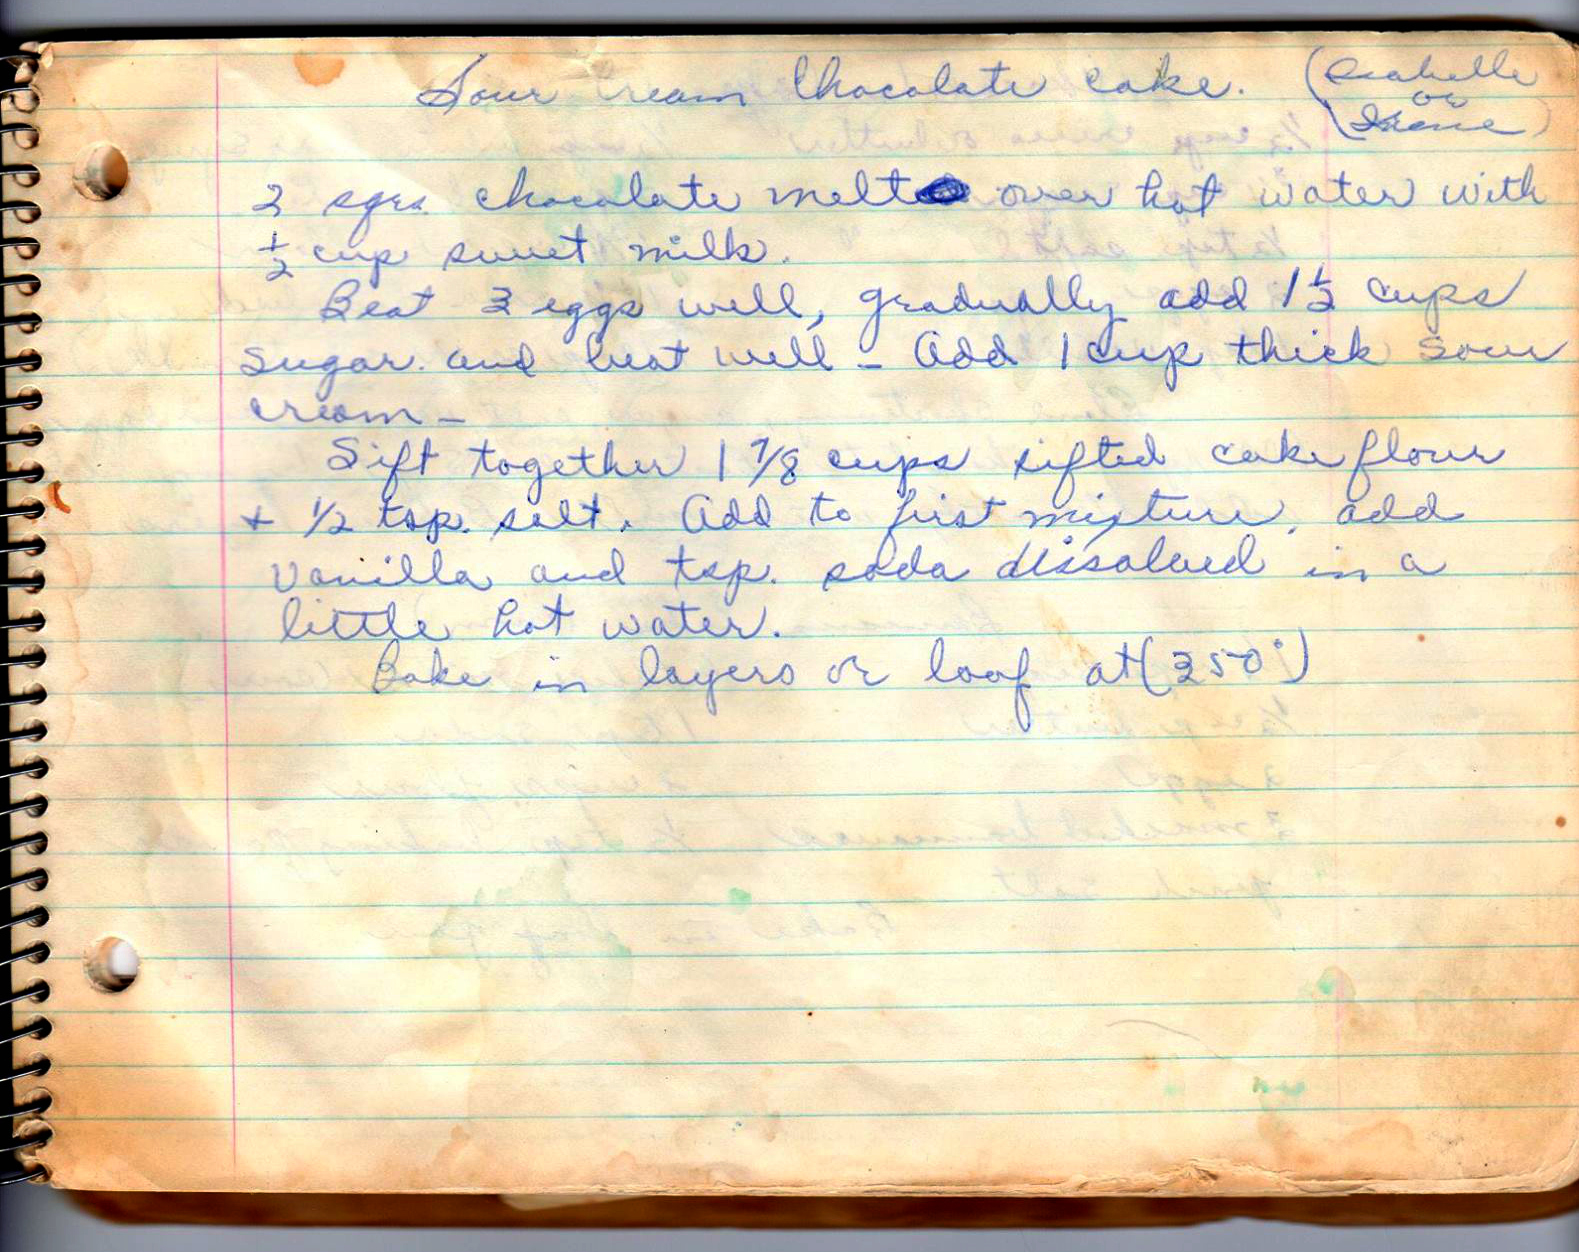 Sour Cream Chocolate Cake. (Isabelle
or
Irene)
2 sqrs. chocolate melt over hot water with
1/2 cup sweet milk.
Beat 3 eggs well, gradually add 1 1/2 cups
sugar. and beat well - Add 1 cup thick sour
cream -
Sift together 1 7/8 cups sifted cake flour
+ 1/2 tsp. salt. Add to first mixture, add
vanilla and tsp. soda dissolved in a
little hot water.
Bake in layers or loaf at (350°)